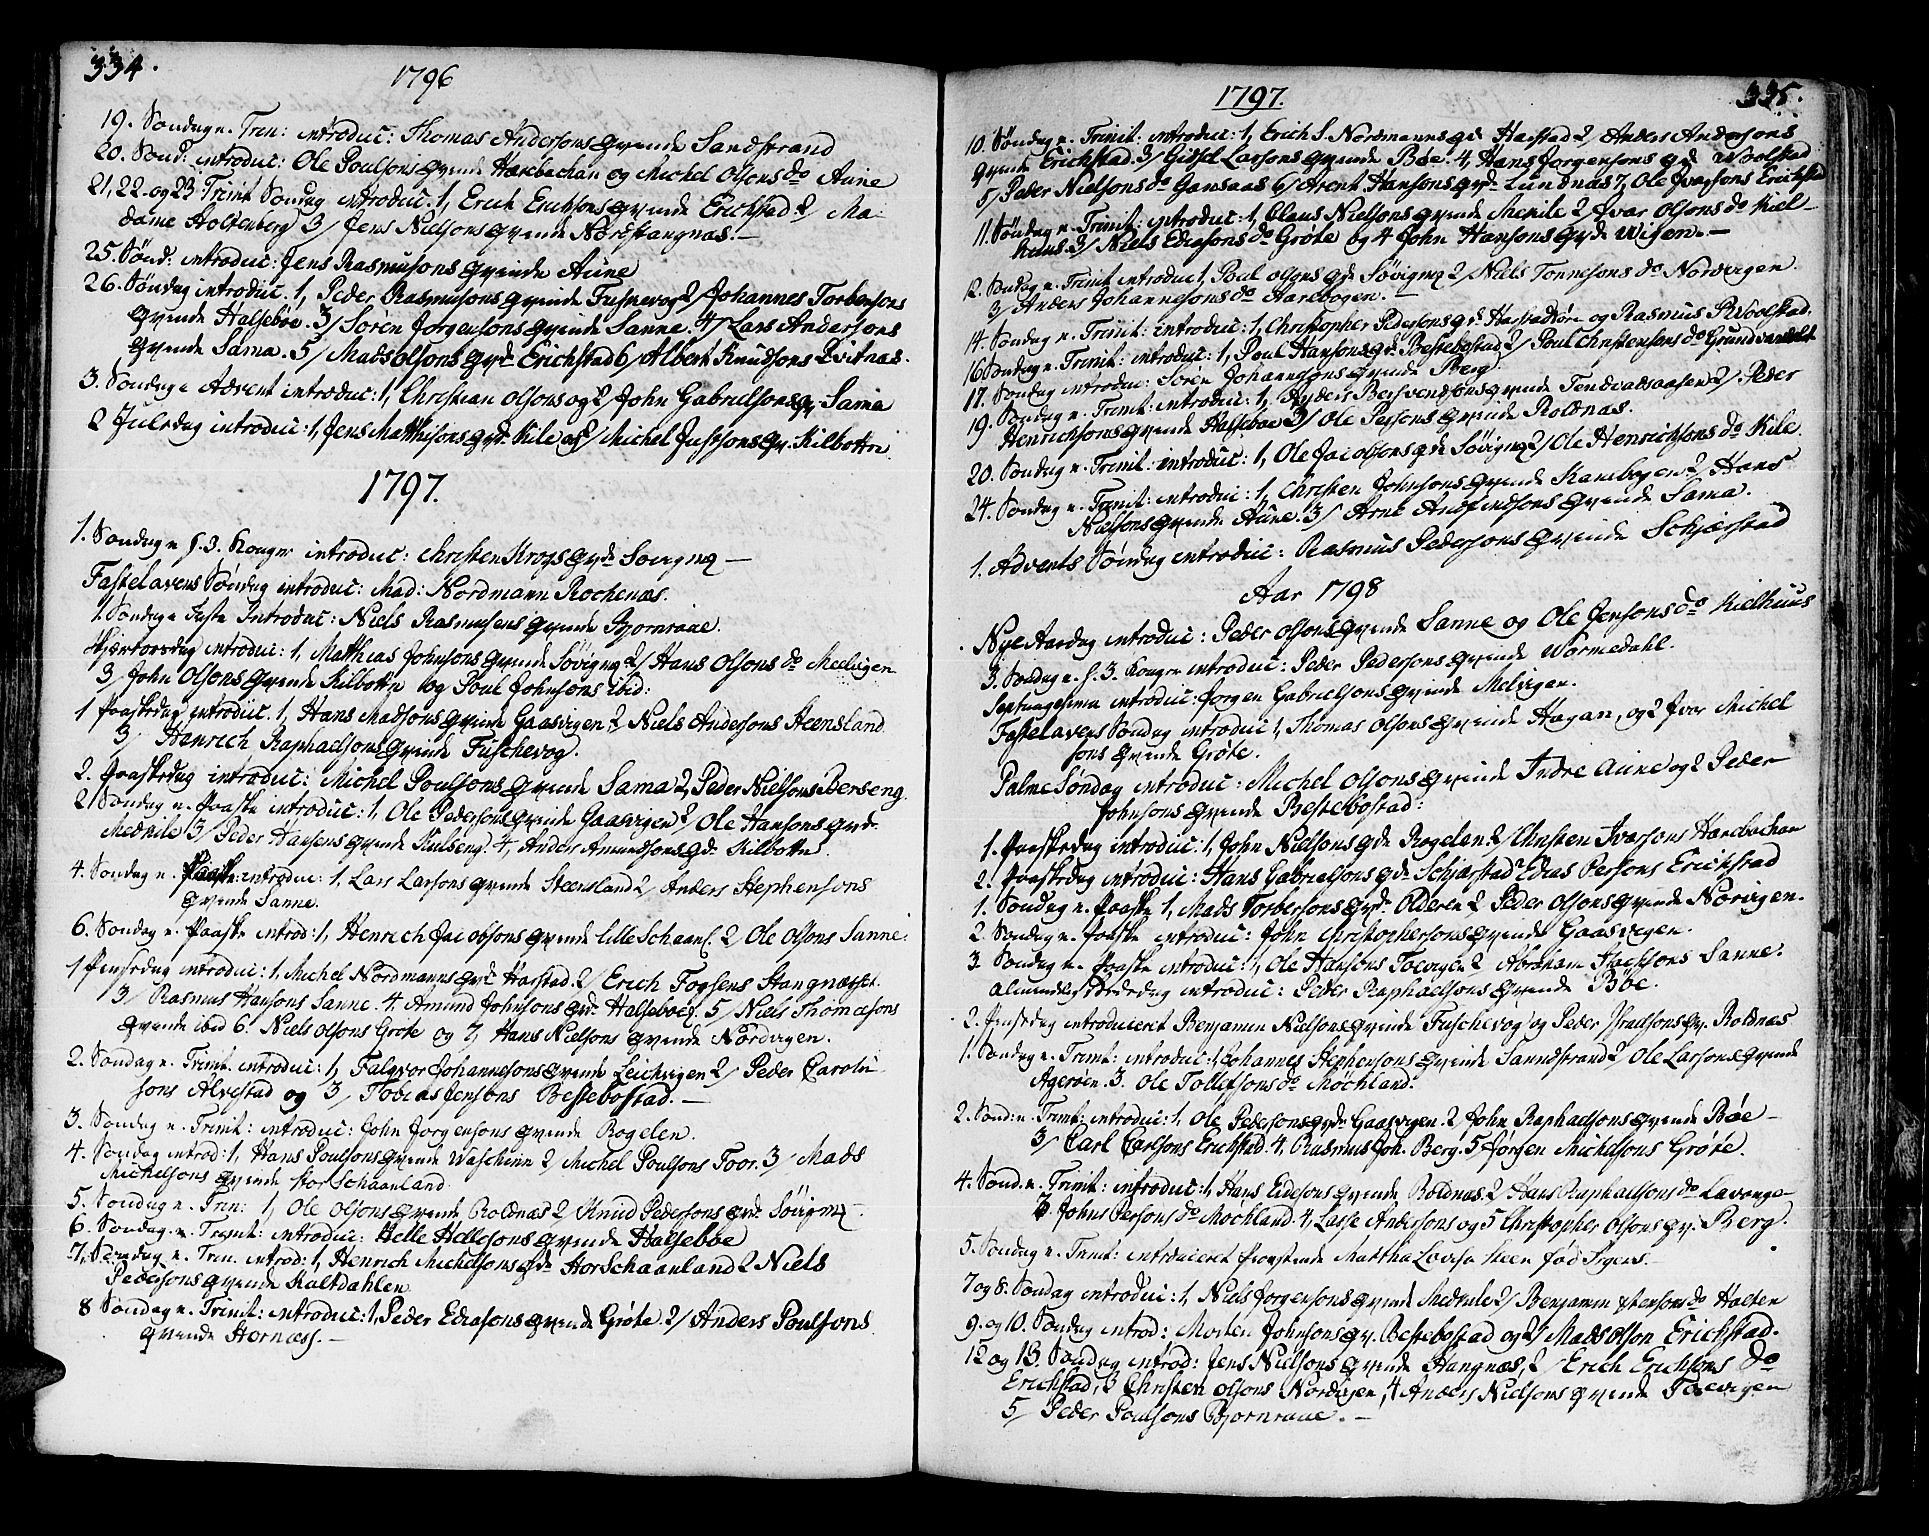 334.
1796
19. Søndag n. Trin: introduc: Thomas Andersons qvinde Sandstrand
20. Sønd: introduc: Ole Poulsons qvinde Harebachan og Michel Olsons do Aune
21, 22. og 23 Trinit Søndag introduc: 1, Erich Erichsons qvinde Erichstad 2/ Ma-
dame Holtenberg 3/ Jens Nielsons qvinde Nordstangnas. —
25. Sønd: introduc: Jens Rasmusons qvinde Aune
26. Søndag introduc: 1, Peder Rasmusons qvinde Fuskevog 2/ Johannes Torbersons
qvinde Halsebøe. 3/ Søren Jorgensons qvinde Sanne. 4/ Lars Andersons
qvinde Sama. 5/ Mads Olsons qvd. Erichstad 6/ Albert Knudsons Qvitnas.
3. Søndag n Advent introduc: 1, Christian Olsons og 2/ John Gabrielsons qv. Sama
2 Juledag introduc: 1, Jens Matthisons qvd. Kile og 2/ Michel Justsons qv. Kilbottn
1797.
1. Søndag n h. 3. Konger introduc: Christen Kroys qvd. Søvigen —
Fastelavens Søndag introduc: Mad: Nordmann Rochenas.
1. Søndag n Faste Introduc: Niels Rasmusens qvinde Bjornraae.
Skjærtorsdag introduc: 1, Matthias Johnsons qvinde Søvigen 2/ Hans Olsons do Melvigen
3/ John Olsons qvinde Kilbottn og Poul Johnsons ibid:
1 Paaskedag introduc: 1, Hans Madsons qvinde Gaasvigen 2, Niels Andersons Steensland
3/ Henrich Raphaelsons qvinde Fuschevog.
2. Paaskedag introduc: Michel Poulsons qvinde Sama 2, Peder Nielsons Berseng.
2 Søndag n. Paaske introduc: 1, Ole Pedersons qvinde Gaasvigen 2/ Ole Hansons qvd.
Medkile 3/ Peder Hansens qvinde Kulseng. 4, Anders Amundsons qd. Kilbottn.
4. Søndag n. Paaske introduc: 1, Lars Larsons qvinde Steensland 2/ Anders Stephensons
qvinde Sanne.
6. Søndag n. Paaske introd: 1, Henrich Jacobsons qvinde lille Schaanl. 2/ Ole Olsons Sanne.
1 Pinsedag introduc: 1, Michel Nordmanns qvd. Harstad. 2/ Erich Fogsens Stangnæsset.
3/ Rasmus Hansons Sanne. 4. Amund Johnsons qvd. Halseboe. 5/ Niels Thomesons
qvinde ibid 6. Niels Olsons Grøte og 7, Hans Nielsons qvinde Nordvigen.
2. Søndag n. Trinit. introduc: 1, Falqvor Johannesons qvinde Leichvigen 2/ Peder Carolin
sons Alvestad og 3/ Tobias Jensons Bestebostad. —
3. Søndag n. Trinit: introduc: John Jorgensons qvinde Rogelen.
4. Søndag introd: 1, Hans Poulsons qvinde Waschinn 2/ Michel Poulsons Toor. 3/ Mads
Michelsons qvinde stor Schaanland.
5. Søndag n. Trin: 1, Ole Olsons qvinde Roldnas 2/ Knud Pedersons qvd. Søvigen.
6. Søndag n. Trinit: introduc: Helle Hellesons qvinde Halsebøe
7. Søndag n. Trin. introd: 1, Henrich Michelsons qde Stor Schaanland 2 Niels
Pedersons qvinde Kaltdahlen
8 Søndag n. Trinit: introduc: 1, Peder Ediasons qvinde Grøte. 2/ Anders Poulsons
qvinde Stornæss. —
335.
1797.
10. Søndag n. Trinit. introduc: 1, Erich S. Nordmanns qd Harstad 2/ Anders Andersons
qvinde Erichstad. 3/ Gidsel Larsons qvinde Bøe. 4, Hans Jorgensons qd Woolstad
5/ Peder Nielsons do Gansaas 6/ Arent Hansons qvd. Lundnas 7, Ole Ivarsons Erichstad
11. Søndag n. Trinit: introduc: 1, Claus Nielsons qvinde Mekile 2/ Ivar Olsons do Kiel-
huus. 3/ Niels Ediasons do Grøte og 4 John Hansons qvde Wigen. —
12. Søndag n. Trinit introduc: 1, Poul Olsons qde Søvigen 2/ Niels Tønnesons do Nordvigen.
3/ Anders Johannesons do Harebogen. —
14. Søndag n. Trinit: introduc: 1, Christopher Pedersons qd. Harstadbøen og Rasmus P. Woolstad.
16 Søndag n. Trinit: introduc: 1, Poul Hansons qd. Bestebostad 2/ Poul Christensons do Grundvandet
17. Søndag introduc: Søren Johannesons qvinde Berg.
19. Søndag n. Trinit: introduc: 1, Anders Bersvensons qvinde Tendvadsaasen 2/ Peder
Henrichsons qvinde Halsebøe 3/ Ole Persons qvinde Roldnas.
20. Søndag n. Trinit: introduc: 1, Ole Jacobsons qde Søvigen 2/ Ole Henrichsons do Kile.
24. Søndag n. Trinit: introduc: 1, Christen Johnsons qvinde Harebogen 2/ Hans
Nielsons qvinde Aune. 3/ Arne Andfindsons qvinde Sama.
1. Advents Søndag introduc: Rasmus Pedersons qvinde Schjærstad
Aar 1798
Nye Aarsdag introduc: Peder Olsons qvinde Sanne og Ole Jensons do Kielhuus
3. Søndag n. h. 3. Konger introduc: Peder Pedersons qvinde Wormedahl.
Septuagesima introduc: Jorgen Gabrielsons qvinde Melvigen.
Fastelavens Søndag introduc 1, Thomas Olsons qvinde Hagan, og 2 Ivar Michel
sons qvinde Grøte.
Palme Søndag introduc: Michel Olsons qvinde Indre Aune og 2 Peder
Johnsons qvinde Bestebostad:
1. Paaskedag introduc: 1, John Nielsons qde Rogelen. 2/ Christen Ivarsons Harebachan
2. Paaskedag introduc: Hans Gabrielsons qde Schjærstad 2 Edias Persons Erichstad
1. Søndag n. Paaske 1, Mads Torbersons qvd. Olderen 2 Peder Olsons qvinde Norvigen.
2. Søndag n. Paaske introduc: John Christophersons qvinde Gaasvigen.
3. Søndag n. Paaske introduc: 1, Ole Hansons Toevigen 2/ Abraham Isachsons Sanne.
Almindelig Bededag introduc: Peder Raphaelsons qvinde Bøe.
2. Pinsedag introduceret Benjamin Nielsons qvinde Fuschevog og Peder Isralsons qv. Roldnas
1. Søndag n. Trinit: introduc: 1, Johannes Stephensons qvinde Sanndstrand 2/ Ole Larsons qvinde
Agerøen. 3. Ole Tollefsons do Mochland:
2. Sønd: n. Trinit: introduc: 1, Ole Pedersons qvde Gaasvigen. 2 John Raphaelsons qvinde Bøe —
3/ Carl Carlsons Erichstad. 4, Rasmus Joh. Berg. 5 Jørgen Michelsons Grøte.
4. Sønd. n. Trinit: introduc: 1, Hans Eidesons qvinde Roldnas. 2 Hans Raphaelsons do Lavange
3 Johns Persons do Mochland. 4, Lasse Andersons og 5 Christopher Olsons qv. Berg.
5. Søndag n. Trinit: introduceret Proustinde Martha Lovisa Steen fød Irgens. —
7 og 8. Søndag introduc: 1, Niels Jorgensons qvinde Medkile 2/ Benjamin Ustensons do Halten
9. og 10. Søndag introd: Morten Johnsons qv. Bestebostad og 2/ Mads Olson Erichstad.
12 og 13. Søndag introd: Jens Nielsons qvinde Stangnas, 2/ Erich Erichsons do
Erichstad, 3 Christen Olsons Nordvigen, 4 Anders Nielsons qvinde Toevigen
5/ Peder Poulsons Bjornraae. —